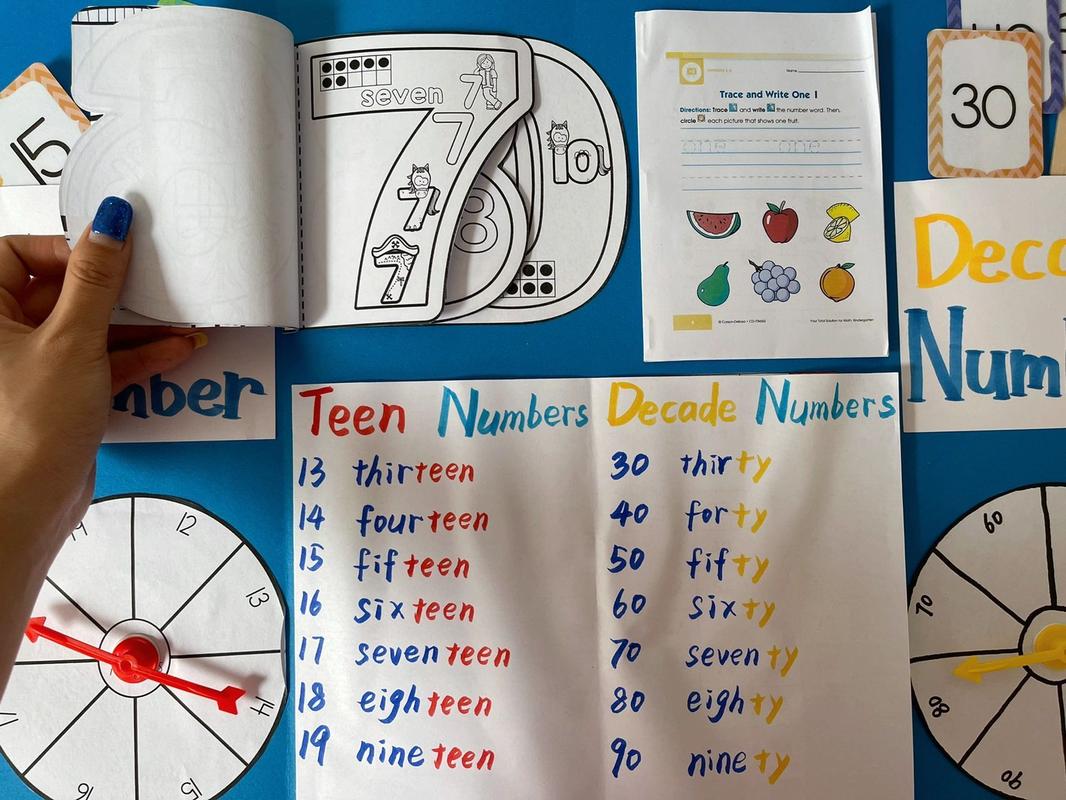 15
seven 7
7
7
7
8
10
Trace and Write One 1
Name
Directions: Trace and write the number word. Then,
circle each picture that shows one fruit.
one one
© Carson-Dellosa
Your Total Solution for Math: Kindergarten
30
Deca
Num
mber
Teen Numbers
13 thirteen
14 fourteen
15 fifteen
16 sixteen
17 seventeen
18 eighteen
19 nineteen
Decade Numbers
30 thirty
40 forty
50 fifty
60 sixty
70 seventy
80 eighty
90 ninety
12
13
14
15
16
60
70
80
90